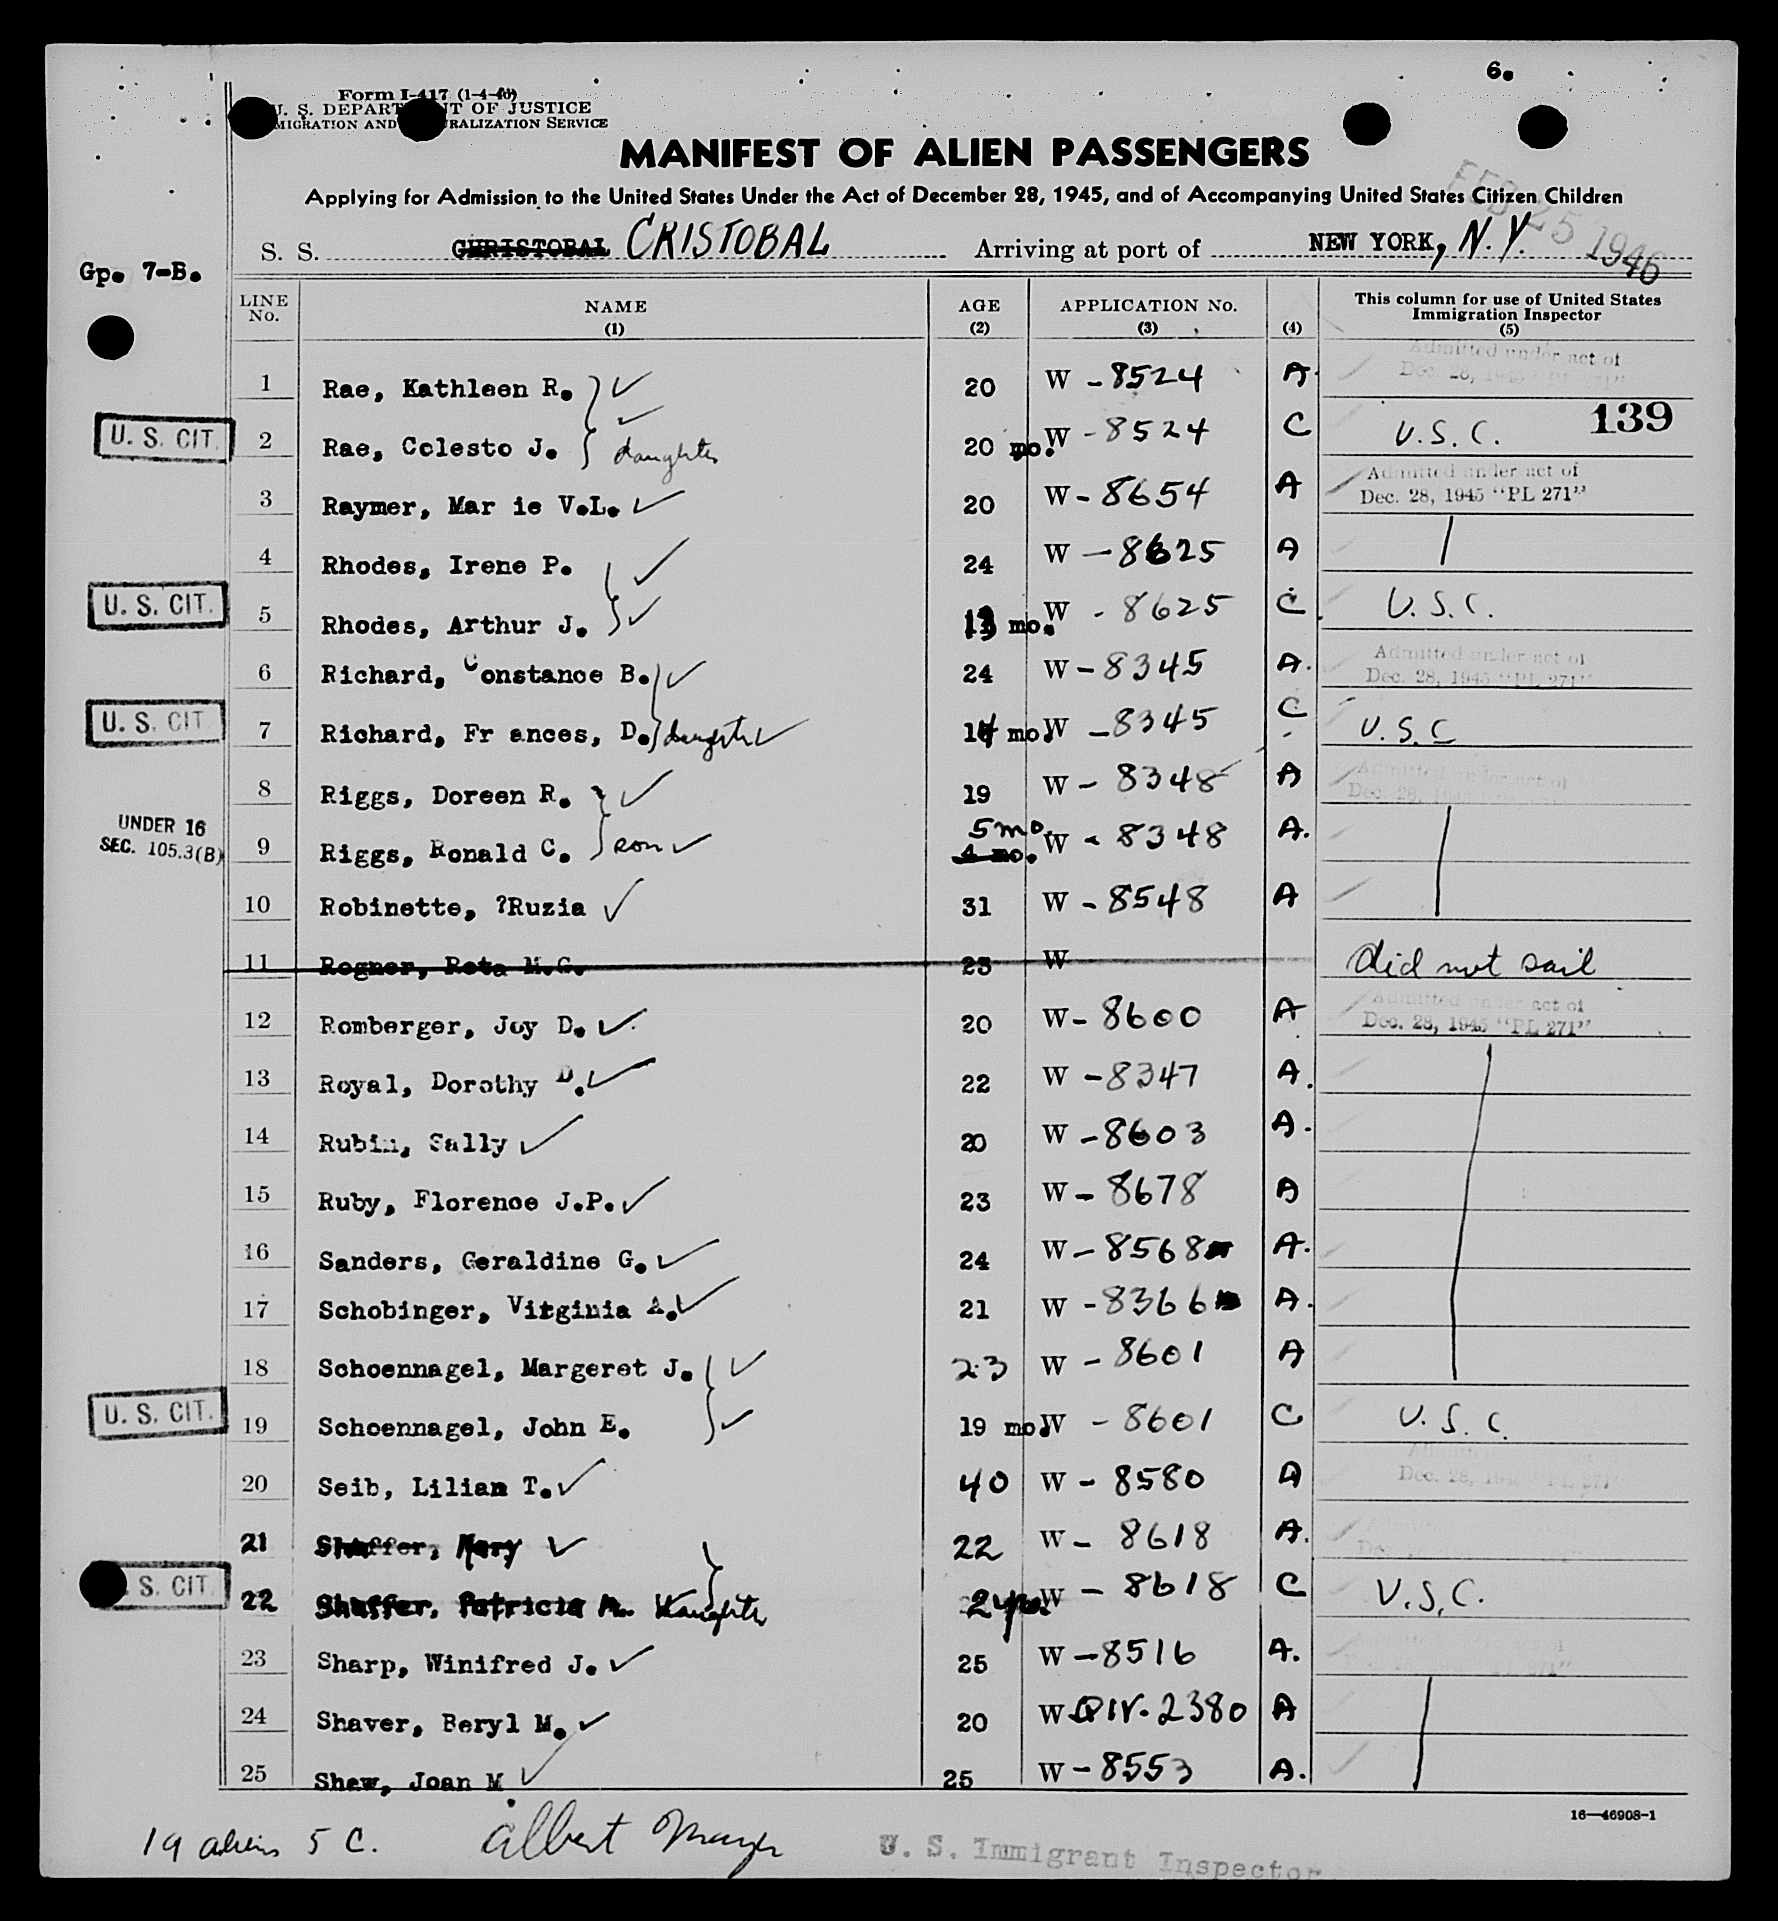 6.
Form I-417 (1-4-46)
U. S. DEPARTMENT OF JUSTICE
IMMIGRATION AND NATURALIZATION SERVICE
MANIFEST OF ALIEN PASSENGERS
Applying for Admission to the United States Under the Act of December 28, 1945, and of Accompanying United States Citizen Children
FEB 25 1946
S. S. CHRISTOBAL CRISTOBAL Arriving at port of NEW YORK, N.Y.
Gp. 7-B.
LINE No. NAME (1) AGE (2) APPLICATION No. (3) (4) This column for use of United States Immigration Inspector (5)
1 Rae, Kathleen R. 20 W - 8524 A. Admitted under act of Dec. 28, 1945 "PL 271"
139
U. S. CIT. 2 Rae, Celesto J. daughter 20 mo. W - 8524 C U.S.C.
3 Raymer, Mar ie V.L. 20 W - 8654 A Admitted under act of Dec. 28, 1945 "PL 271"
4 Rhodes, Irene P. 24 W - 8625 A
U. S. CIT. 5 Rhodes, Arthur J. mo. W - 8625 C U.S.C.
6 Richard, Constance B. 24 W - 8345 A. Admitted under act of Dec. 28, 1945 "PL 271"
U. S. CIT 7 Richard, Fr ances, D. daughter 14 mo. W - 8345 C U.S.C
8 Riggs, Doreen R. 19 W - 8348 A Admitted under act of Dec. 28, 1945
UNDER 16 SEC. 105.3(B) 9 Riggs, Ronald C. son 5 mo. 4 mo. W - 8348 A.
10 Robinette, ?Ruzia 31 W - 8548 A
11 Rogner, Reta M.G. 23 W did not sail
12 Romberger, Joy D. 20 W - 8600 A Admitted under act of Dec. 28, 1945 "PL 271"
13 Royal, Dorothy D. 22 W - 8347 A.
14 Rubin, Sally 20 W - 8603 A.
15 Ruby, Florence J.P. 23 W - 8678 A
16 Sanders, Geraldine G. 24 W - 8568 A.
17 Schobinger, Virginia A. 21 W - 8366 A.
18 Schoennagel, Margeret J. 23 W - 8601 A
U. S. CIT. 19 Schoennagel, John E. 19 mo. W - 8601 C U.S.C.
20 Seib, Lilian T. 40 W - 8580 A Dec. 28, 1945 "PL 271"
21 Shaffer, Mary 22 W - 8618 A.
S. CIT. 22 Shaffer, Patricia A. daughter 2 yrs. W - 8618 C U.S.C.
23 Sharp, Winifred J. 25 W - 8516 A.
24 Shaver, Beryl M. 20 W QIV. 2380 A
25 Shaw, Joan M. 25 W - 8553 A.
16—46908-1
19 aliens 5 C. Albert U. S. Immigrant Inspector